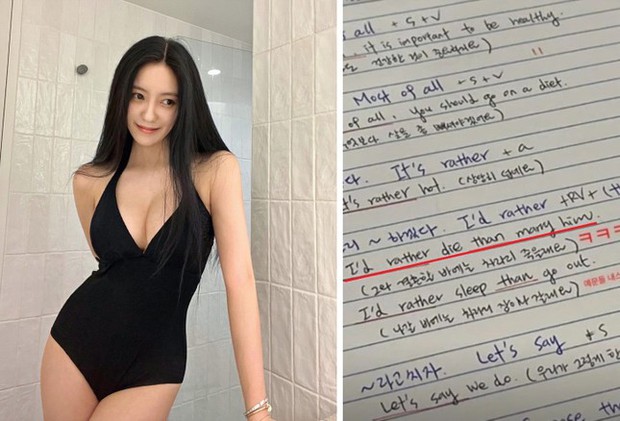 all + S + V
, it is important to be healthy.
Most of all + S + V
of all, you should go on a diet.
다. It's rather + a
t's rather hot. (상당히 덥네요)
~ 하겠다. I'd rather +RV+ (th
I'd rather die than marry him.
ㅋㅋㅋ
(그와 결혼할 바에는 차라리 죽을래요)
I'd rather sleep than go out.
(나갈 바에는 차라리 잠이나 잘래요)
예문들 내스
~라고치자. Let's say + S
Let's say we do. (우리가 그렇게 한